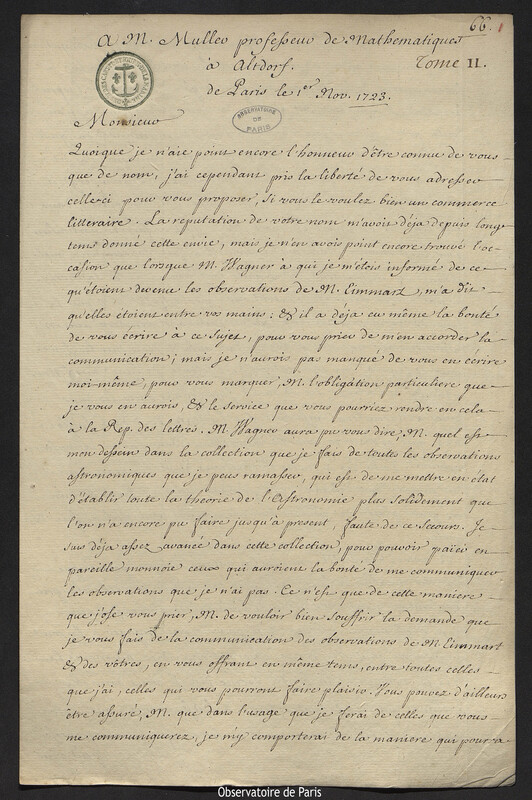 66. 1
A M. Muller professeur de Mathematiques
à Altdorf. Tome II.
de Paris le 1er Nov. 1723.
OBSERVATOIRE
DE
PARIS
Monsieur
Quoique je n'aie point encore l'honneur d'être connu de vous
que de nom, j'ai cependant pris la liberté de vous adresser
celle-ci pour vous proposer, si vous le voulez bien un commerce
litteraire. La reputation de votre nom m'avoit déja depuis long
tems donné cette envie, mais je n'en avois point encore trouvé l'oc-
casion que lorsque M. Wagner à qui je m'étois informé de ce
qu'étoient devenu les observations de M. Eimmart, m'a dit
qu'elles étoient entre vos mains: & il a déja eu même la bonté
de vous écrire à ce sujet, pour vous prier de m'en accorder la
communication; mais je n'aurois pas manqué de vous en écrire
moi-même, pour vous marquer, M. l'obligation particuliere que
je vous en aurois, & le service que vous pourriez rendre en cela
à la Rep. des lettres. M. Wagner aura pu vous dire, M. quel est
mon dessein dans la collection que je fais de toutes les observations
astronomiques que je peus ramasser, qui est de me mettre en état
d'établir toute la théorie de l'Astronomie plus solidement que
l'on n'a encore pu faire jusqu'à present, faute de ce secours. Je
suis déja assez avancé dans cette collection, pour pouvoir païer en
pareille monnoie ceux qui auroient la bonté de me communiquer
les observations que je n'ai pas. Ce n'est que de cette maniere
que j'ose vous prier, M. de vouloir bien souffrir la demande que
je vous fais de la communication des observations de M Eimmart
& des vôtres, en vous offrant en même tems, entre toutes celles
que j'ai, celles qui vous pourront faire plaisir. Vous pouvez d'ailleurs
être assuré, M. que dans l'usage que je ferai de celles que vous
me communiquerez, je m'y comporterai de la maniere qui pourra
Observatoire de Paris